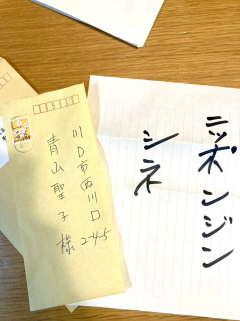 ニッポンジン
シネ
川口市西川口
2-4-5
青山聖子様